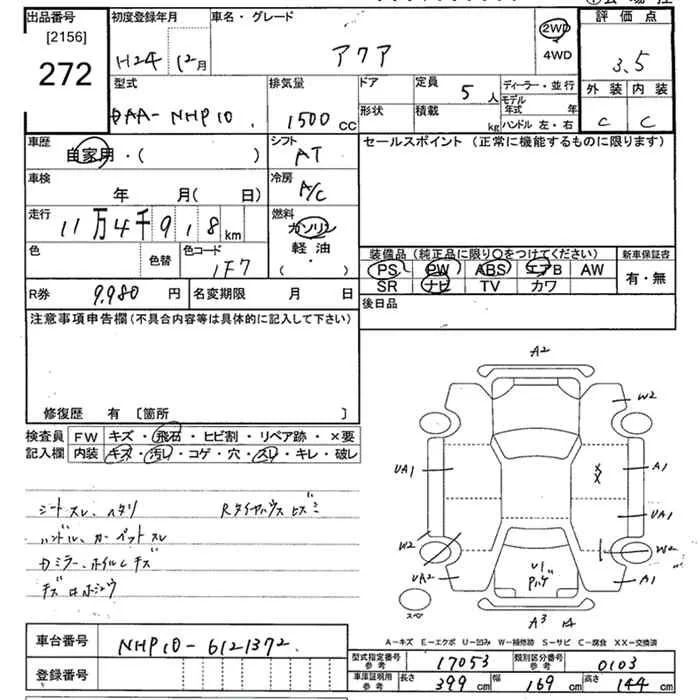 出品番号 初度登録年月 車名・グレード 2WD 評価点
[2156] 4WD
272 H24 12月 アクア 3.5
型式 排気量 ドア 定員 5人 ディーラー・並行 外装 内装
DAA-NHP10 1500cc 形状 積載 kg モデル年式 年 C C
ハンドル 左・右
車歴 自家用・( ) シフト AT セールスポイント (正常に機能するものに限ります)
車検 年 月( 日) 冷房 A/C
走行 11万4千918km 燃料 ガソリン
軽油
・( )
色 色替 色コード 1F7
装備品 (純正品に限り○をつけてください) 新車保証書
PS PW ABS エアB AW 有・無
SR ナビ TV カワ
R券 9,980円 名変期限 月 日 後日品
注意事項申告欄 (不具合内容等は具体的に記入して下さい)
修復歴 有 [箇所 ]
検査員 FW キズ・飛石・ヒビ割・リペア跡・×要
記入欄 内装 キズ・汚レ・コゲ・穴・スレ・キレ・破レ
シートスレ、ヘタリ
ハンドル、カーペットスレ
ドミラー、ホイルキズ
A2
W2
UA1 XX A1
UA1
W2 W2
UA2 U1 A1
A3
スペア
A−キズ E−エクボ U−凹み W−補修跡 S−サビ C−腐食 XX−交換済
車台番号 NHP10-6121372
登録番号
型式指定番号 参考 17053 類別区分番号 参考 0103
車庫証明用 参考 長さ 399cm 幅 169cm 高さ 144cm